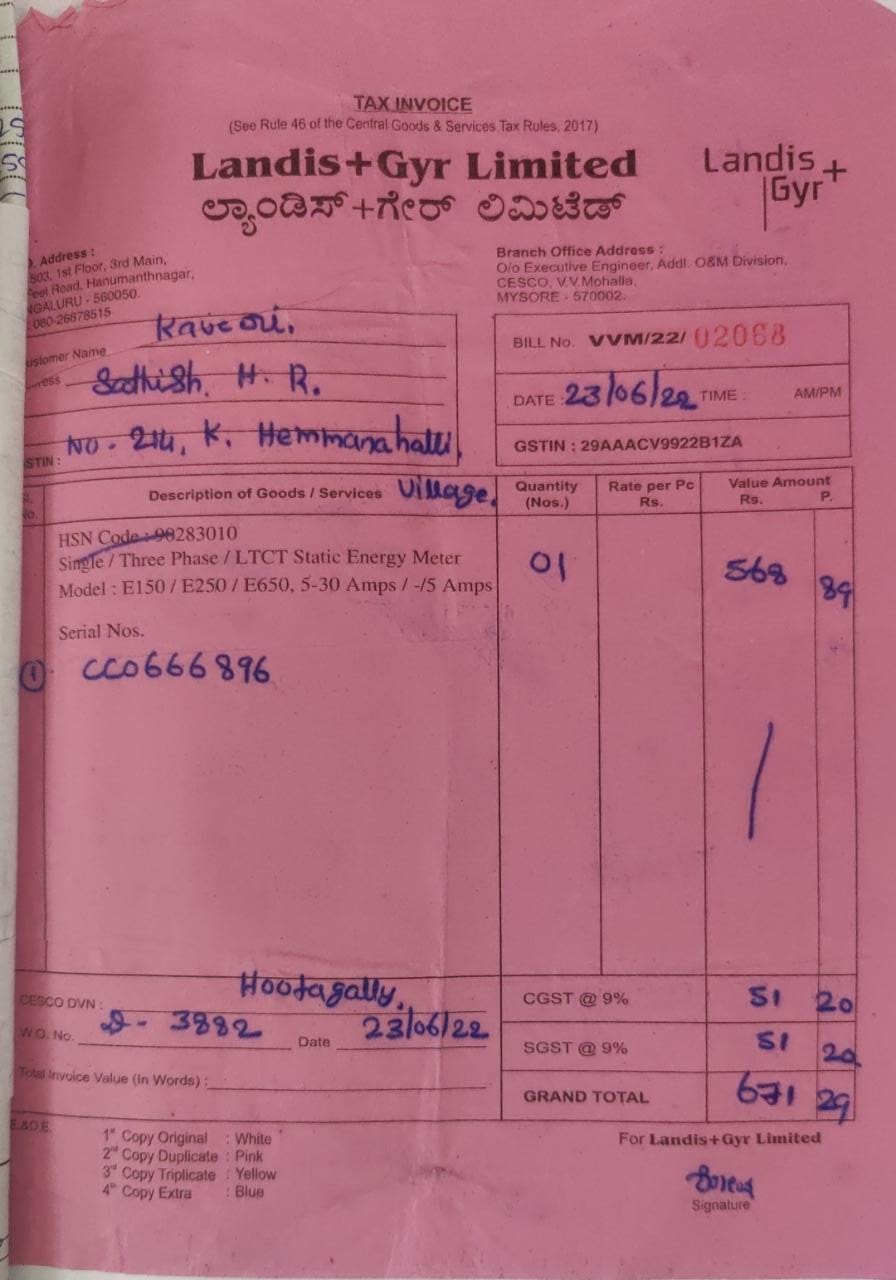 TAX INVOICE
(See Rule 46 of the Central Goods & Services Tax Rules, 2017)
Landis+Gyr Limited
ಲ್ಯಾಂಡಿಸ್+ಗೇರ್ ಲಿಮಿಟೆಡ್
Landis+
Gyr
Address :
503, 1st Floor, 3rd Main,
Road, Hanumanthnagar,
- 560050.
080-26678515
Branch Office Address :
O/o Executive Engineer, Addl. O&M Division,
CESCO, V.V.Mohalla,
MYSORE - 570002.
Kaveri.
Name
Sathish. H. R.
NO - 214, K. Hemmanahalli
Village.
BILL No. VVM/22/ 02068
DATE : 23/06/22 TIME : AM/PM
GSTIN : 29AAACV9922B1ZA
Description of Goods / Services
Quantity (Nos.)
Rate per Pc Rs.
Value Amount Rs. P.
HSN Code : 90283010
Single / Three Phase / LTCT Static Energy Meter
Model : E150 / E250 / E650, 5-30 Amps / -/5 Amps
01 568 89
Serial Nos.
1 CC0666896
CESCO DVN : Hootagally.
W.O. No. D- 3882 Date 23/06/22
Total Invoice Value (In Words) :
CGST @ 9% 51 20
SGST @ 9% 51 20
GRAND TOTAL 671 29
E.&O.E.
1st Copy Original : White
2nd Copy Duplicate : Pink
3rd Copy Triplicate : Yellow
4th Copy Extra : Blue
For Landis+Gyr Limited
Signature